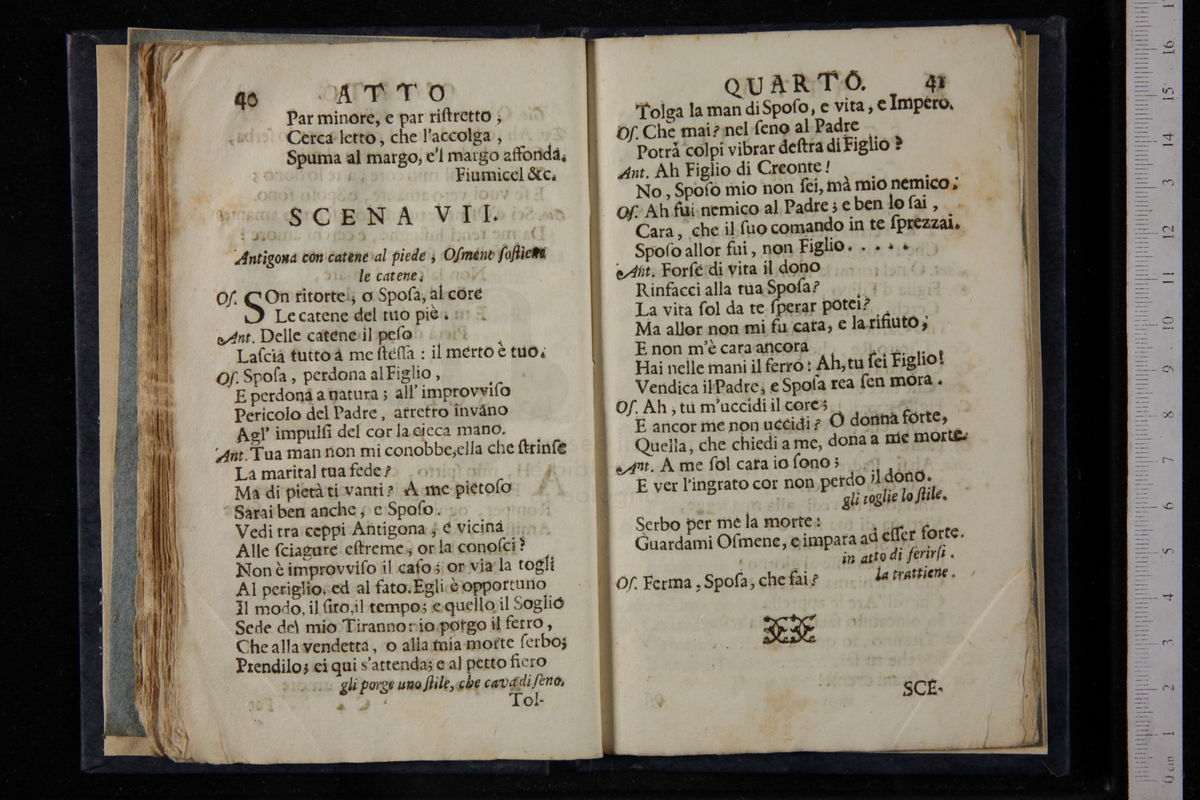 40 ATTO
Par minore, e par riſtretto,
Cerca letto, che l'accolga,
Spuma al margo, e'l margo affonda.
Fiumicel &c.
SCENA VII.
Antigona con catene al piede, Oſmene ſoſtiene
le catene.
Oſ. SOn ritorte, o Spoſa, al core
Le catene del tuo piè.
Ant. Delle catene il peſo
Laſcia tutto a me ſteſſa: il merto è tuo.
Oſ. Spoſa, perdona al Figlio,
E perdona a natura; all' improvviſo
Pericolo del Padre, arretrò invano
Agl' impulſi del cor la cieca mano.
Ant. Tua man non mi conobbe, ella che ſtrinſe
La marital tua fede?
Ma di pietà ti vanti? A me pietoſo
Sarai ben anche, e Spoſo.
Vedi tra ceppi Antigona, e vicina
Alle ſciagure eſtreme, or la conoſci?
Non è improvviſo il caſo; or via la togli
Al periglio, ed al fato. Egli è opportuno
Il modo, il ſito, il tempo; e quello il Soglio
Sede del mio Tiranno: io porgo il ferro,
Che alla vendetta, o alla mia morte ſerbo;
Prendilo; ei qui s'attenda; e al petto fiero
gli porge uno ſtile, che cava di ſeno.
Tol-
QUARTO. 41
Tolga la man di Spoſo, e vita, e Impero.
Oſ. Che mai? nel ſeno al Padre
Potrà colpi vibrar deſtra di Figlio?
Ant. Ah Figlio di Creonte!
No, Spoſo mio non ſei, mà mio nemico.
Oſ. Ah fui nemico al Padre; e ben lo ſai,
Cara, che il ſuo comando in te ſprezzai.
Spoſo allor fui, non Figlio. . . . .
Ant. Forſe di vita il dono
Rinfacci alla tua Spoſa?
La vita ſol da te ſperar potei?
Ma allor non mi fu cara, e la rifiuto;
E non m'è cara ancora
Hai nelle mani il ferro: Ah, tu ſei Figlio!
Vendica il Padre, e Spoſa rea ſen mora.
Oſ. Ah, tu m'uccidi il core;
E ancor me non uccidi? O donna forte,
Quella, che chiedi a me, dona a me morte.
Ant. A me ſol cara io ſono;
E ver l'ingrato cor non perdo il dono.
gli toglie lo ſtile.
Serbo per me la morte:
Guardami Oſmene, e impara ad eſſer forte.
in atto di ferirſi.
Oſ. Ferma, Spoſa, che fai? la trattiene.
SCE-
0 cm 1 2 3 4 5 6 7 8 9 10 11 12 13 14 15 16